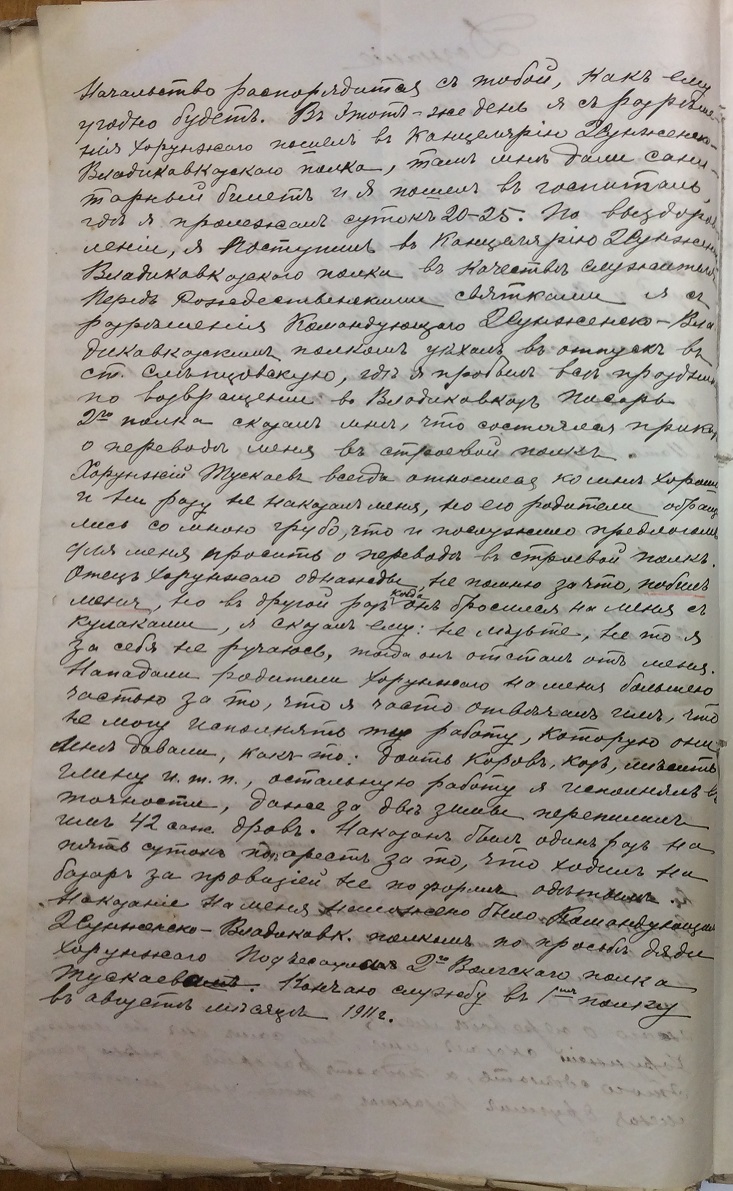 Начальство распорядится съ тобой, какъ ему
угодно будетъ. Въ этотъ-же день я съ разрѣше-
нія хорунжаго пошелъ въ Канцелярію 2 Сунженско-
Владикавказскаго полка, тамъ мнѣ дали сани-
тарный билетъ и я пошелъ въ госпиталь,
гдѣ я пролежалъ сутокъ 20-25. По выздоров-
леніи, я поступилъ въ Канцелярію 2 Сунженско
Владикавказскаго полка въ качествѣ служителя
Передъ Рождественскими святками я съ
разрѣшенія Командующаго 2 Сунженско-Вла
дикавказскимъ полкомъ уѣхалъ въ отпускъ въ
ст. Слѣпцовскую, гдѣ я пробылъ всѣ праздники
по возвращеніи въ Владикавказъ писарь
2го полка сказалъ мнѣ, что состоялся приказъ
о переводѣ меня въ строевой полкъ.
Хорунжій Тускаевъ всегда относился ко мнѣ хорошо
и ни разу не наказалъ меня, но его родители обраща
лись со мною грубо, что и послужило предлогомъ
для меня просить о переводѣ въ строевой полкъ.
Отецъ хорунжаго однажды, не помню за что, побилъ
меня, но въ другой разъ когда онъ бросился на меня съ
кулаками, я сказалъ ему: не лѣзьте, не то я
за себя не ручаюсь, тогда онъ отсталъ отъ меня.
Нападали родители хорунжаго на меня большею
частью за то, что я часто отвѣчалъ имъ, что
не могу исполнять ту работу, которую они
мнѣ давали, какъ-то: доить коровъ, козъ, мѣсить
глину и.т.п., остальную работу я исполнялъ въ
точности, даже за двѣ зимы перепилилъ
имъ 42 саж. дровъ. Наказанъ былъ одинъ разъ на
пять сутокъ подъ арестъ за то, что ходилъ на
базаръ за провизіей не по формѣ одѣтымъ.
Наказаніе на меня наложено было Командующимъ
2 Сунженско-Владикавк. полкомъ по просьбѣ дяди
хорунжаго Подъесаула 2го Волгскаго полка
Тускаева. Кончаю службу въ 1мъ полку
въ августѣ мѣсяцѣ 1911 г.